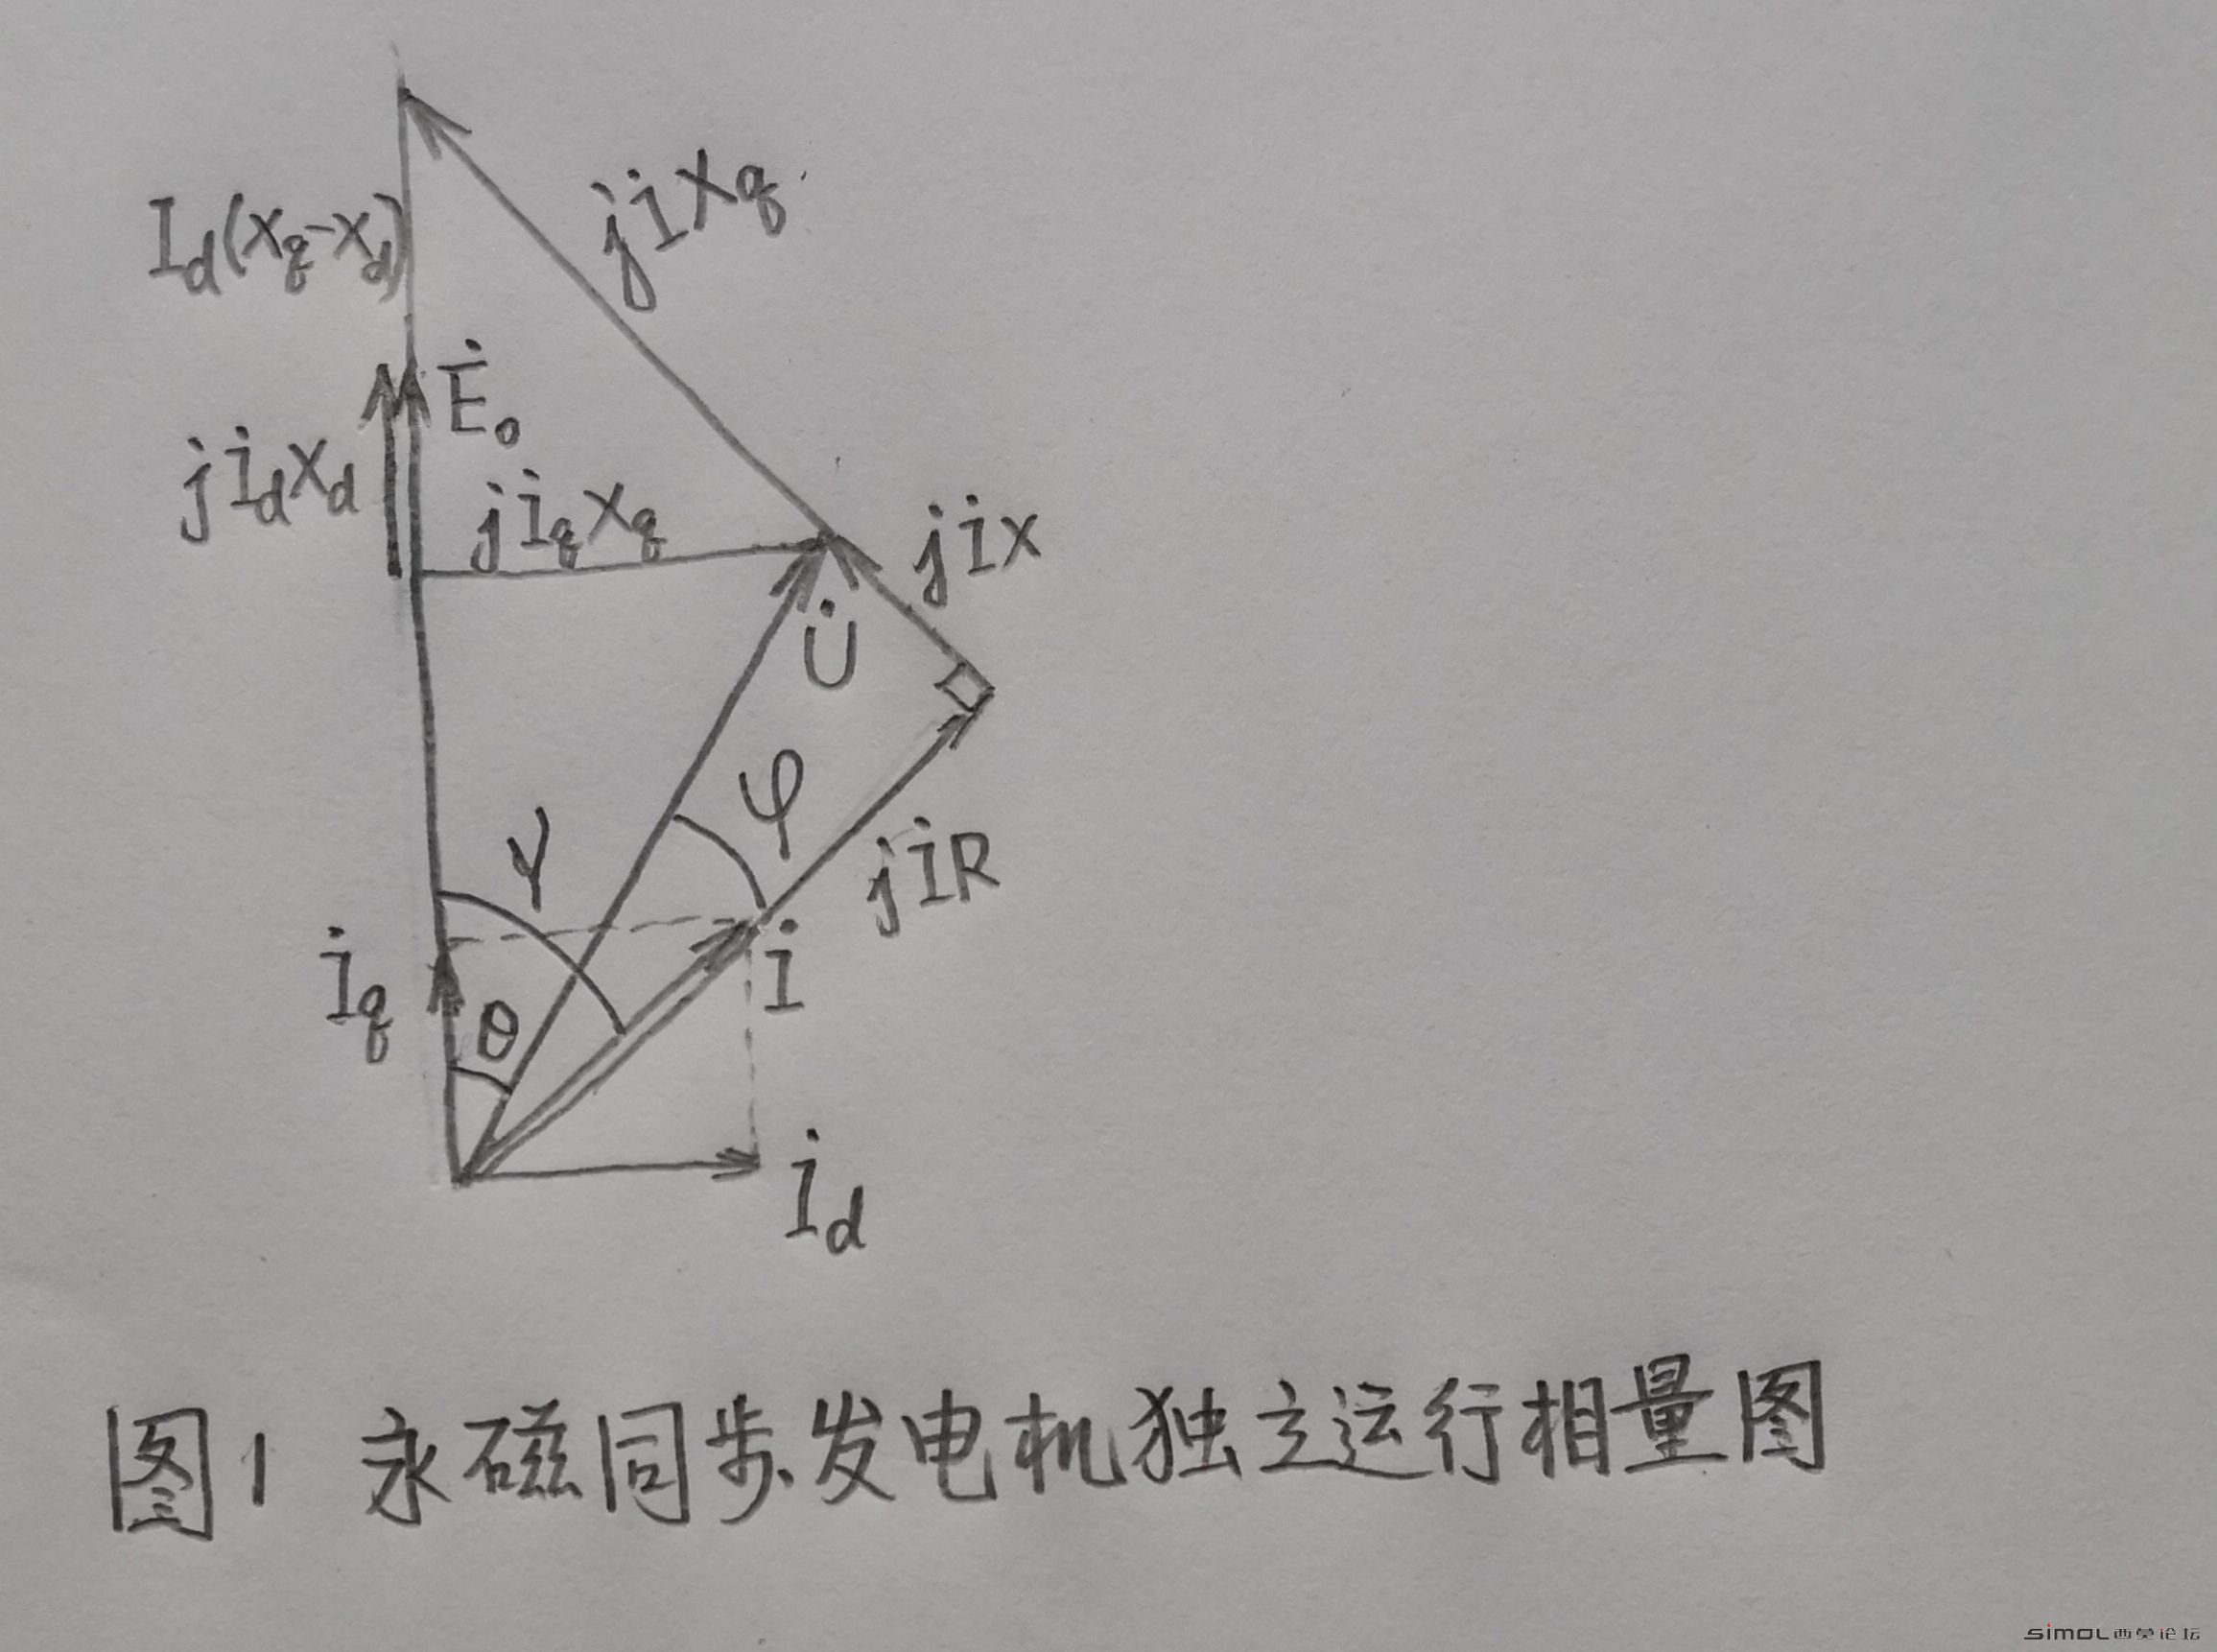 I_d(X_q-X_d)
jİX_q
Ė₀
jİ_dX_d
jİ_qX_q
jİX
U̇
φ
ψ
jİR
İ_q
θ
İ
İ_d
图1 永磁同步发电机独立运行相量图
simol西莫论坛